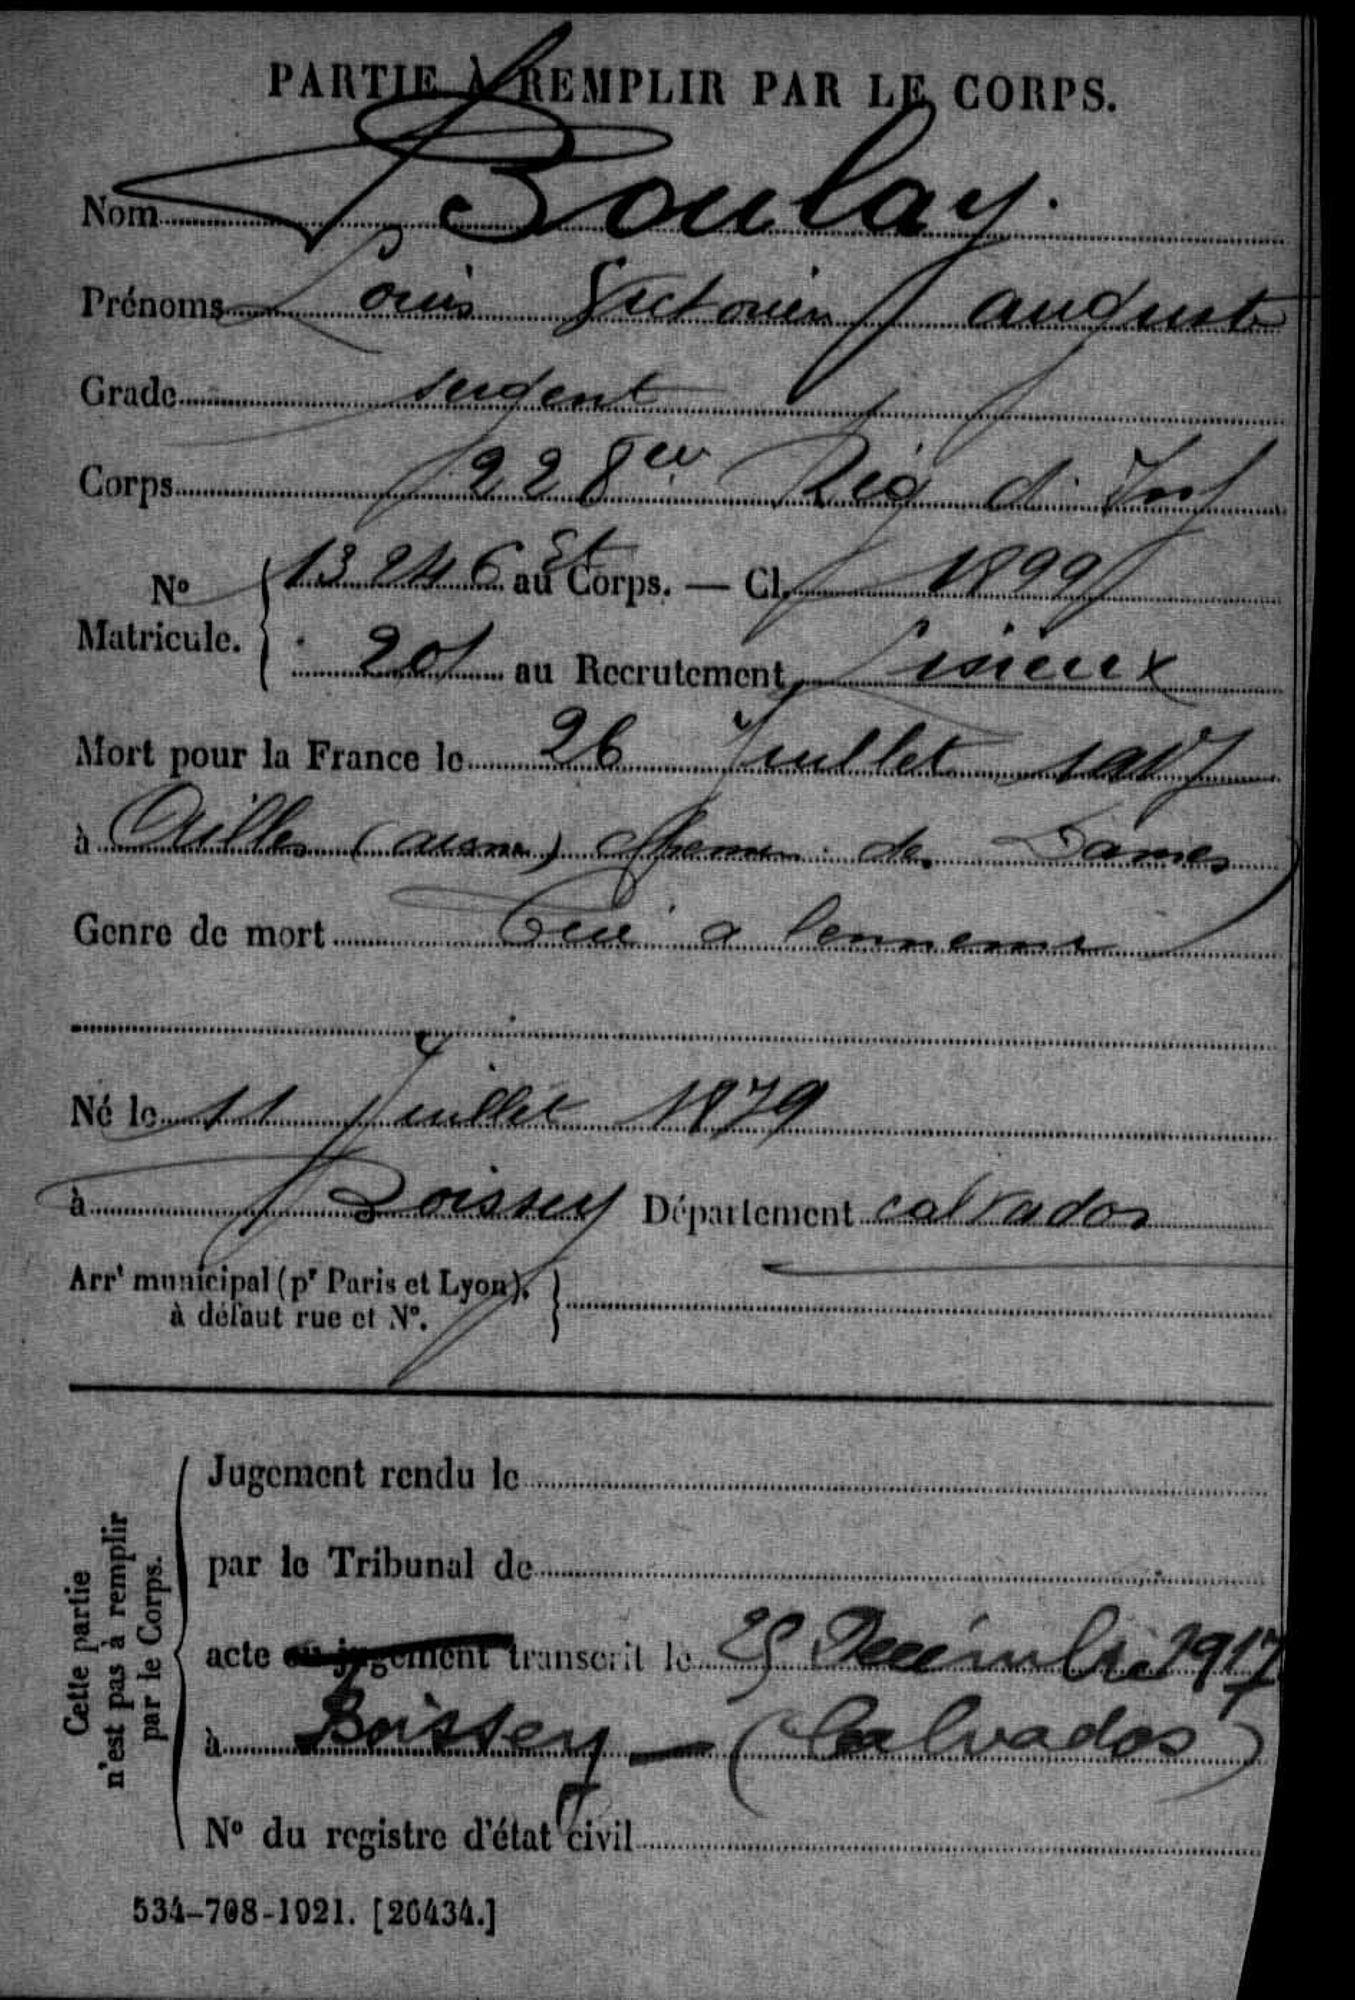 PARTIE À REMPLIR PAR LE CORPS.
Nom Boulay.
Prénoms Louis Victorien auguste
Grade sergent
Corps 228eme Rég d'Inf
No Matricule. 13246 au Corps. — Cl. 1899
201 au Recrutement Lisieux
Mort pour la France le 26 Juillet 1917
à Ailles (aisne) Chemin des Dames
Genre de mort Tué a lennemi
Né le 11 Juillet 1879
à Boissey Département calvados
Arrt municipal (pr Paris et Lyon),
à défaut rue et No.
Cette partie
n'est pas à remplir
par le Corps.
Jugement rendu le
par le Tribunal de
acte ou jugement transcrit le 25 Décembre 1917
à Boissey — (Calvados)
No du registre d'état civil
534-708-1921. [26434.]